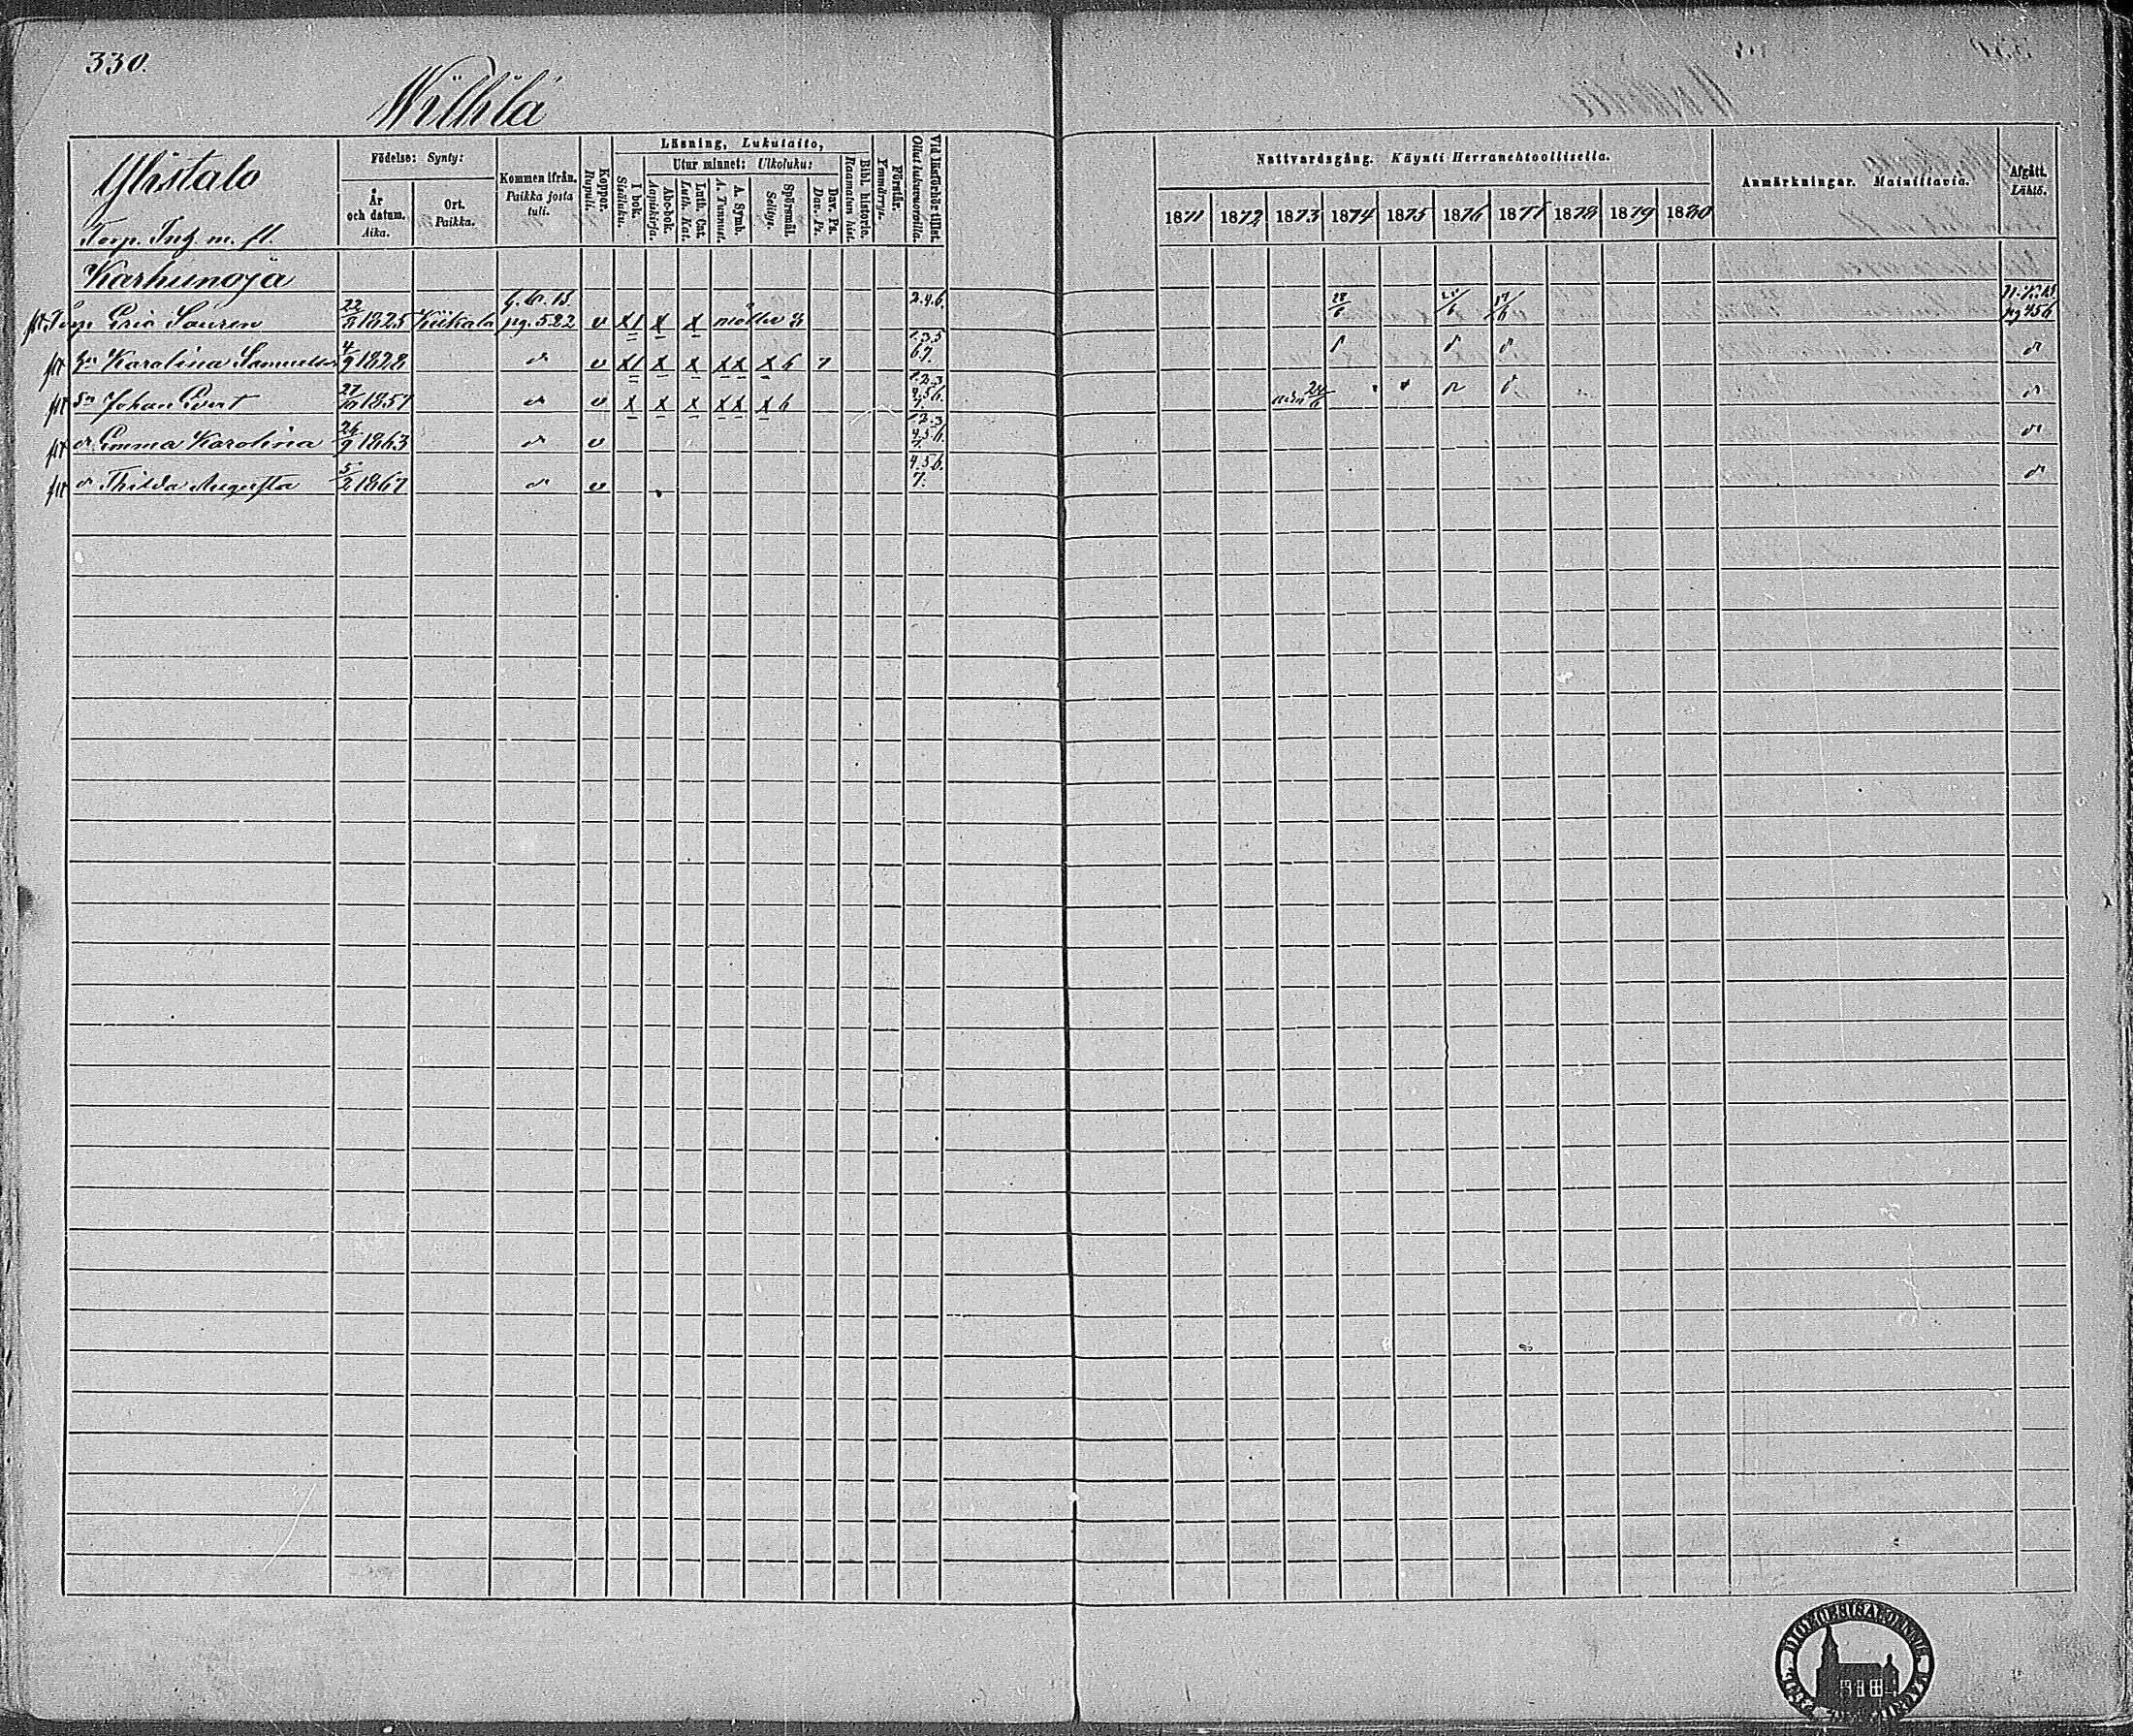 330.
Wilhla
Yhistalo
Torp. Inh. m. fl.
Födelse: Synty:
År och datum. Aika.
Ort. Paikka.
Kommen ifrån. Paikka josta tuli.
Koppor. Rupuli.
Läsning, Lukutaito,
I bok. Sisäluku.
Utur minnet: Ulkoluku:
Abcbok. Aapiskirja.
Luth. Cat. Luth. Kat.
A. Symb. A. Tunnust.
Spörsmål. Selitys.
Dav. Ps. Dav. Ps.
Bibl. historie. Raamatun hist.
Förstår. Ymmärrys.
Vid läsförhör tillst. Ollut lukuvuoroilla.
Nattvardsgång. Käynti Herranehtoollisella.
1871 1872 1873 1874 1875 1876 1877 1878 1879 1880
Anmärkningar. Mainittavia.
Afgått. Lähtö.
Karhunoja
Torp. Eric 22/8 1825 Kiikala G. K. B. pg. 582 v X1 X X 2.4.6. 28/6 17/6 N. K. B. pg 456
Karolina Samuelsdr 4/9 1828 d:o v X1 X X XX X 6 7 1.3.5 6 7. d:o
Sn Johan Evert 27/10 1851 d:o v X X X XX X 6 1.2.3 4.5.6. 7. d:o
dr Emma Karolina 26/9 1863 d:o v 1.2.3 4.5.6. 7. d:o
dr Thilda Augusta 5/2 1867 d:o v 4.5.6. 7. d:o